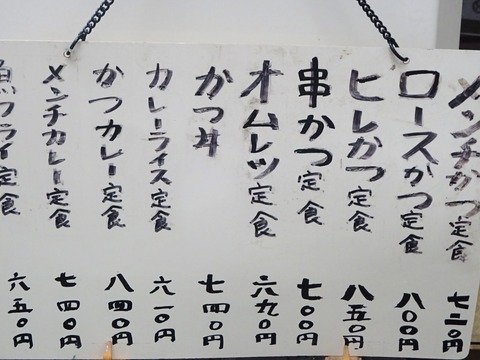 メンチかつ定食 七二〇円
ロースかつ定食 八〇〇円
ヒレかつ定食 八五〇円
串かつ定食 七〇〇円
オムレツ定食 六九〇円
かつ丼 七四〇円
カレーライス定食 六一〇円
かつカレー定食 八四〇円
メンチカレー定食 七四〇円
フライ定食 六五〇円